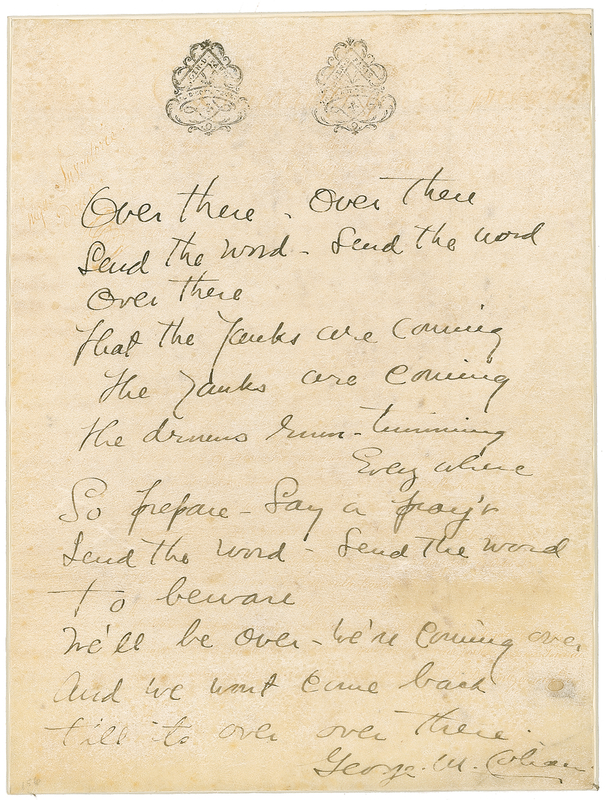 Over there - Over there
Send the word - Send the word
Over there
That the Yanks are coming
The Yanks are coming
The drums rum-tumming
Every where
So prepare - Say a pray'r
Send the word - Send the word
To beware
We'll be over - We're coming over
And we wont come back
till its over over there.
George M. Cohan